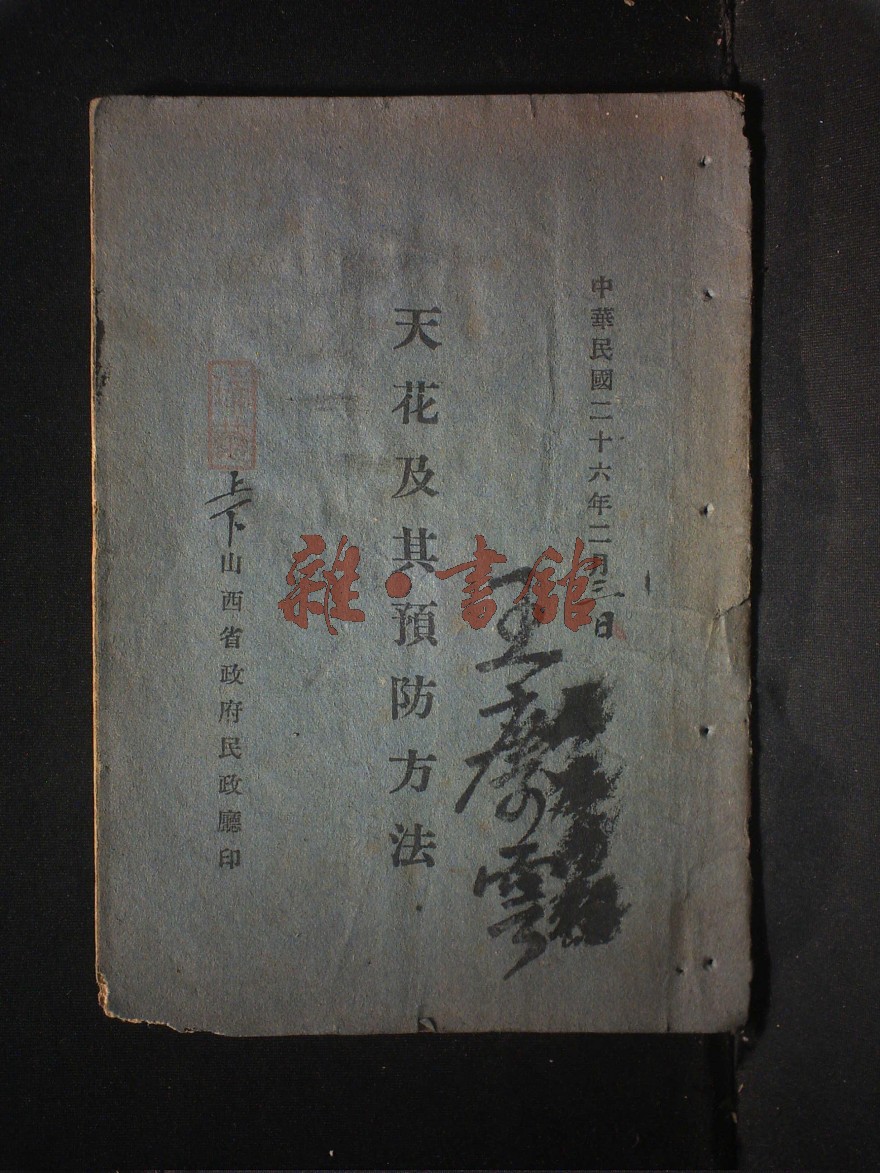 中華民國二十六年二月三日
天花及其預防方法
上下
山西省政府民政廳印
雜·書館